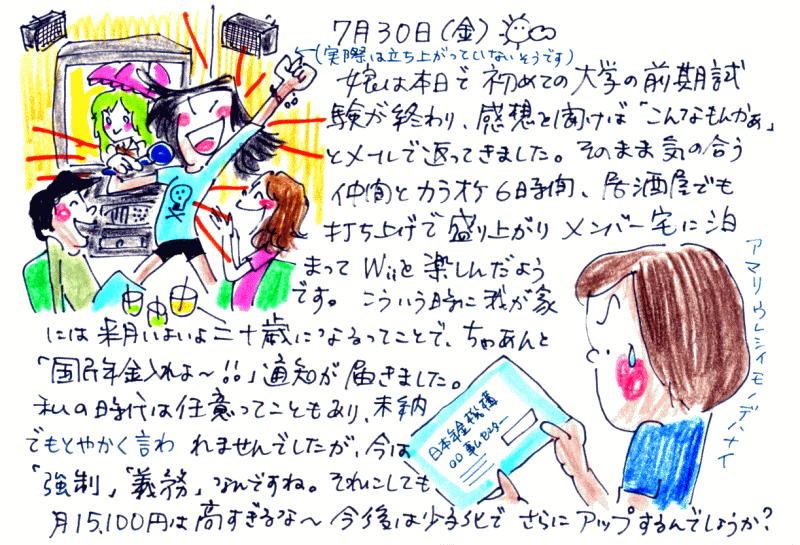 7月30日(金)
(実際は立ち上がっていないそうです)
娘は本日で初めての大学の前期試
験が終わり、感想を聞けば「こんなもんかぁ」
とメールで返ってきました。そのまま気の合う
仲間とカラオケ6時間、居酒屋でも
打ち上げで盛り上がりメンバー宅に泊
まってWiiを楽しんだよう
です。こういう時に我が家
には来月いよいよ二十歳になるってことで、ちゃあんと
「国民年金入れよ～!!」通知が届きました。
私の時代は任意ってこともあり、未納
でもとやかく言われませんでしたが、今は
「強制」「義務」なんですね。それにしても
月15,100円は高すぎるな～今後は少子化でさらにアップするんでしょうか?
日本年金機構
〇〇事ムセンター
アマリウレシイモノデハナイ